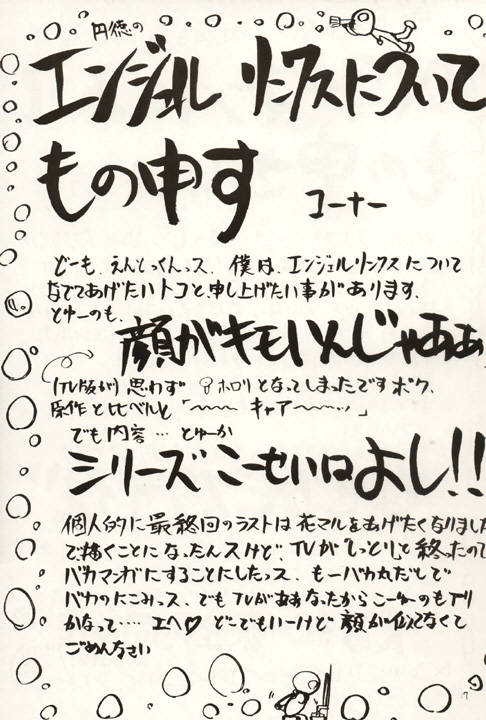 円徳の
エンジェル リンクスについて
もの申す コーナー
どーも、えんとっくんっス、僕は、エンジェルリンクスについて
なでてあげたいトコと、申し上げたい事があります、
とゆーのも、
顔がキモいんじゃああぁ
(TV版が) 思わず ホロリとなってしまったですボク、
原作と比べルと「〜〜〜 キャア〜〜〜ッ」
でも内容… とゅーか
シリーズこーせいはよし!!
個人的に最終回のラストは花マルをあげたくなりました
で描くことになったんスけど、TVが"しっとり"と終ったので
バカマンガにすることにしたっス、もーバカ丸だしで
バカのにこみっス、でもTVがああなったからこーゆーのもアリ
かなって‥‥エヘ♡ どーでもいーけど 顔が似てなくて
ごめんなさい